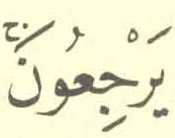 يَرْجِعُونَ ۚ